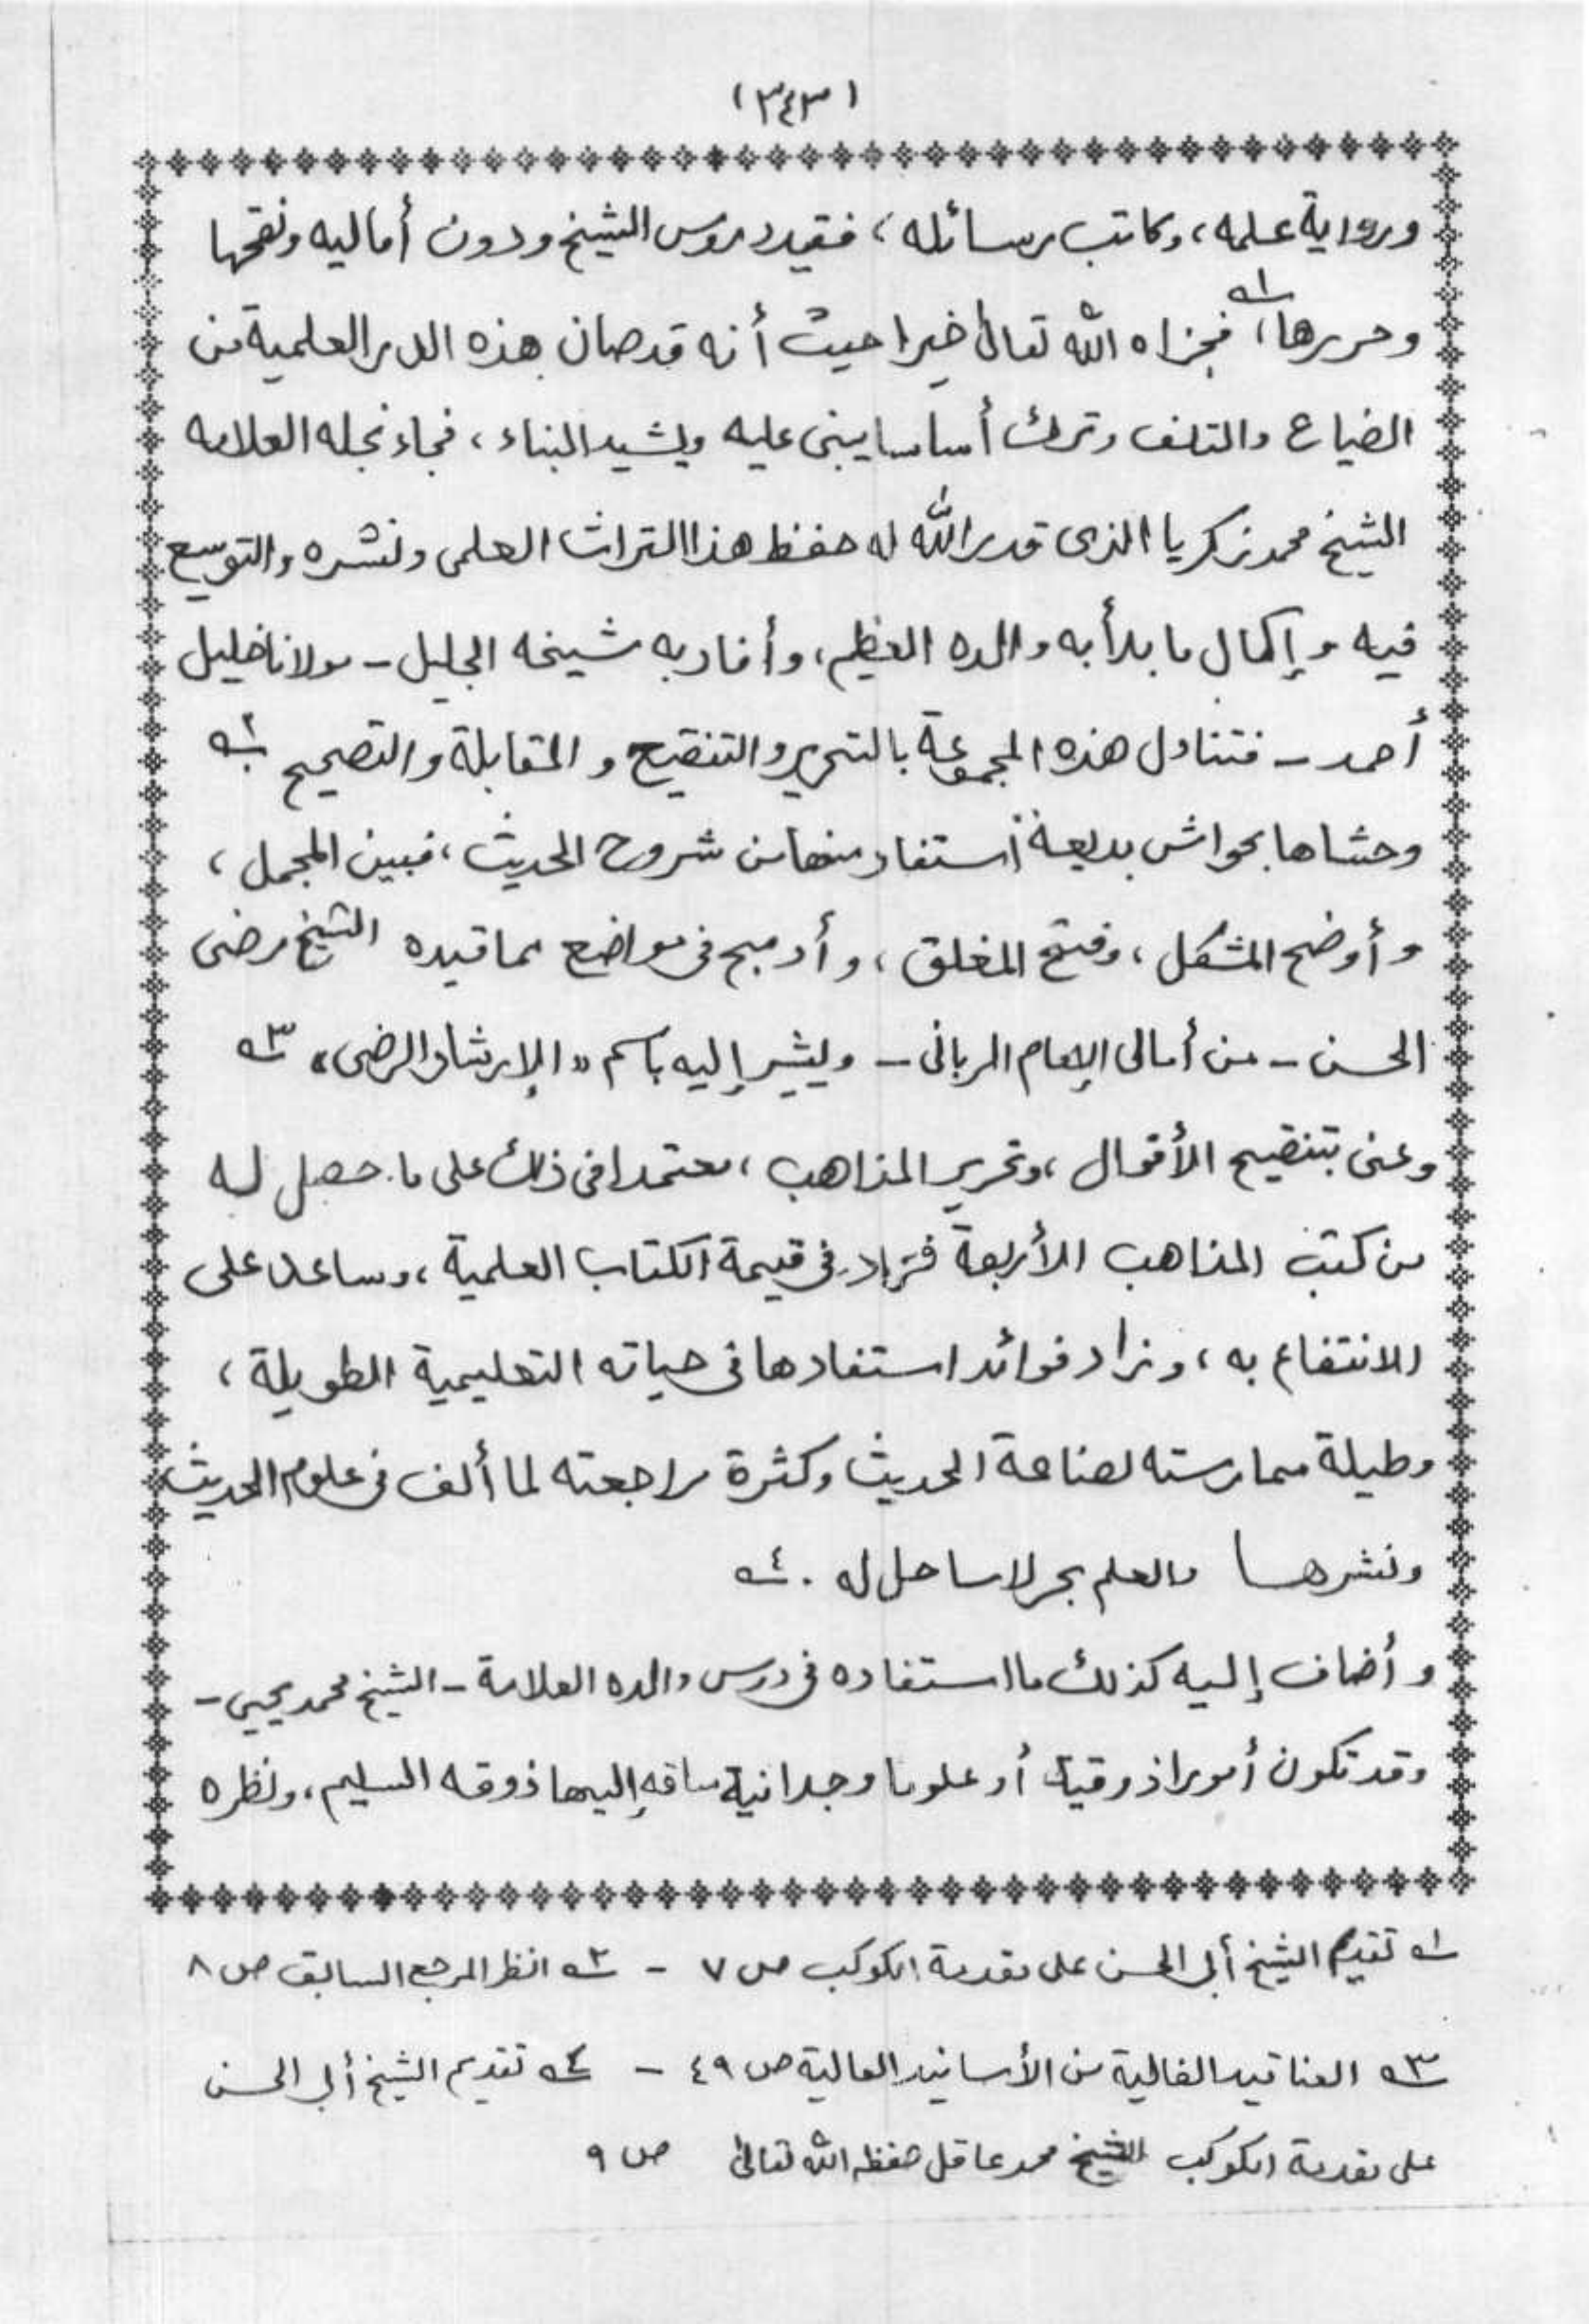 (٣٤٣)
ورواية علمه، وكاتب رسائله، فقيد دروس الشيخ ودون أماليه ونقحها
وحررها،١ فجزاه الله تعالى خيرا حيث أنه قد صان هذه الدرر العلمية من
الضياع والتلف وترك أساسا يبنى عليه ويشيد البناء، فجاء نجله العلامه
الشيخ محمد زكريا الذى قدر الله له حفظ هذا التراث العلمى ونشره والتوسع
فيه وإكمال ما بدأ به والده العظيم، وأفاد به شيخه الجليل - مولانا خليل
أحمد - فتناول هذه المجموعة بالتحرير والتنقيح والمقابلة والتصحيح ٢
وحشاها بحواش بديعة استفاد منها من شروح الحديث، فبين المجمل،
وأوضح المشكل، وفتح المغلق، وأدمج فى مواضع مما قيده الشيخ رضى
الحسن - من أمالى الإمام الربانى - ويشير إليه باسم «الإرشاد الرضى» ٣
وعنى بتنقيح الأقوال، وتحرير المذاهب، معتمدا فى ذلك على ما حصل له
من كتب المذاهب الأربعة فزاد فى قيمة الكتاب العلمية، وساعد على
الانتفاع به، وزاد فوائد استفادها فى حياته التعليمية الطويلة،
وطيلة ممارسته لصناعة الحديث وكثرة مراجعته لما ألف فى علوم الحديث
ونشرها والعلم بحر لا ساحل له . ٤
وأضاف إليه كذلك ما استفاده فى درس والده العلامة - الشيخ محمد يحيى -
وقد تكون أمورا ذوقية أو علوما وجدانية ساقه إليها ذوقه السليم، ونظره
١ تقديم الشيخ أبى الحسن على مقدمة الكوكب ص ٧ - ٢ انظر المرجع السابق ص ٨
٣ العناقيد الغالية من الأسانيد العالية ص ٤٩ - ٤ تقديم الشيخ أبى الحسن
على مقدمة الكوكب الشيخ محمد عاقل حفظه الله تعالى ص ٩